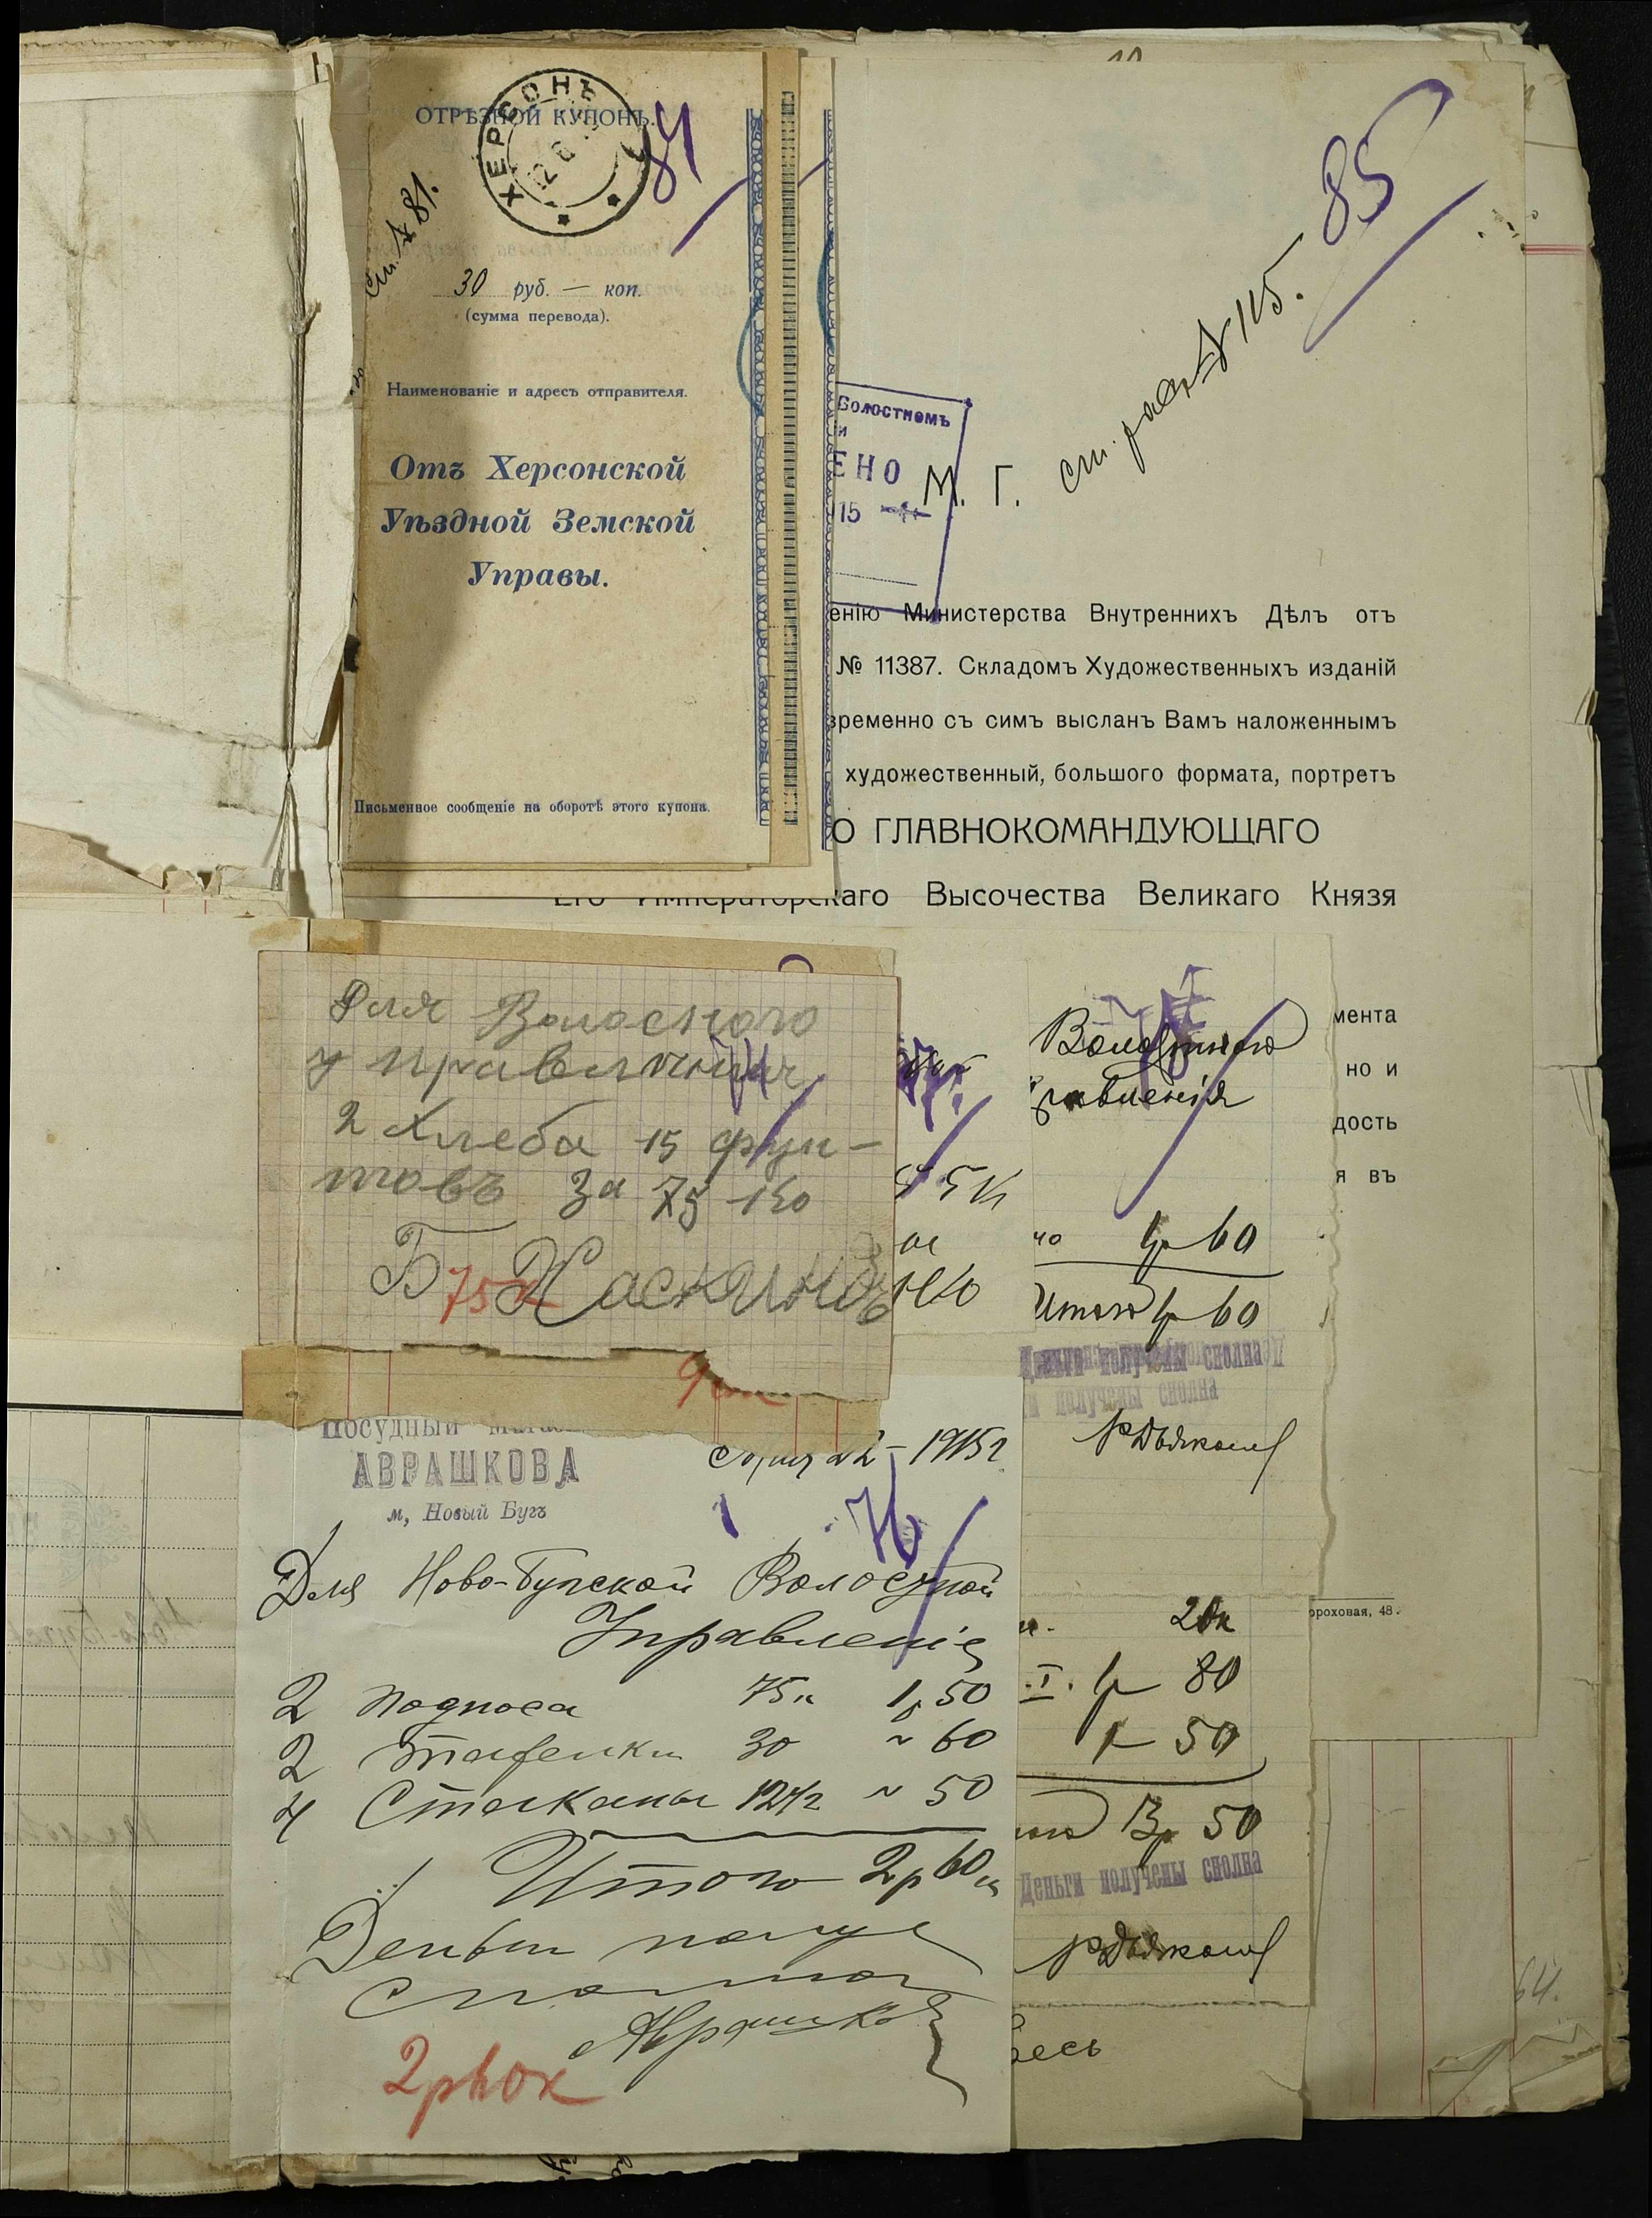 ОТРѢЗНОЙ КУПОНЪ.
ХЕРСОНЪ
84
ст. № 81.
30 руб. — коп.
(сумма перевода).
Наименованіе и адресъ отправителя.
Отъ Херсонской
Уѣздной Земской
Управы.
Письменное сообщеніе на оборотѣ этого купона.
85
№ 115.
Волостномъ
ЕНО
15
М. Г.
енію Министерства Внутреннихъ Дѣлъ отъ
№ 11387. Складомъ Художественныхъ изданій
временно съ симъ высланъ Вамъ наложеннымъ
художественный, большого формата, портретъ
О ГЛАВНОКОМАНДУЮЩАГО
Его Императорскаго Высочества Великаго Князя
мента
но и
дость
я въ
ороховая, 48.
Для Волоскаго
управления
2 Хлеба 15 фун-
товъ за 75 ко
Б Хаскинъ
75к
Волостного
равленія
1р 60
Итого 1р 60
Деньги получены сполна
и получены сполна
Посудный
АВРАШКОВА
м, Новый Бугъ
22 – 1915 г
76
Для Ново-Бугской Волостной
Управленіе
2 подноса 75к 1р 50
2 тарелки 30 " 60
4 Стаканы 12½ " 50
Итого 2р 60к
Деньги получ
сполна
Аврашков
2р60к
20к
I. 1р 80
1 – 50
3р 50
Деньги получены сполна
десь
64.